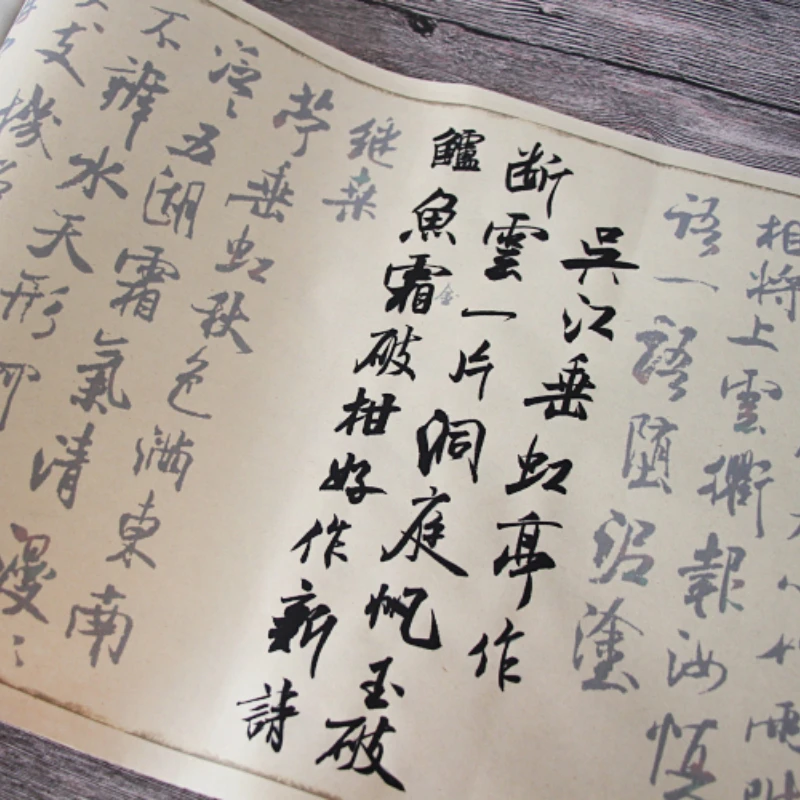 相將上雲衢報汝恆
語一語墮泥塗
吳江垂虹亭作
断雲一片洞庭帆玉破
鱸魚霜破柑好作新詩
继桑
苧垂虹秋色滿東南
泛〻五湖霜氣清漫〻
不辨水天形何
支機石